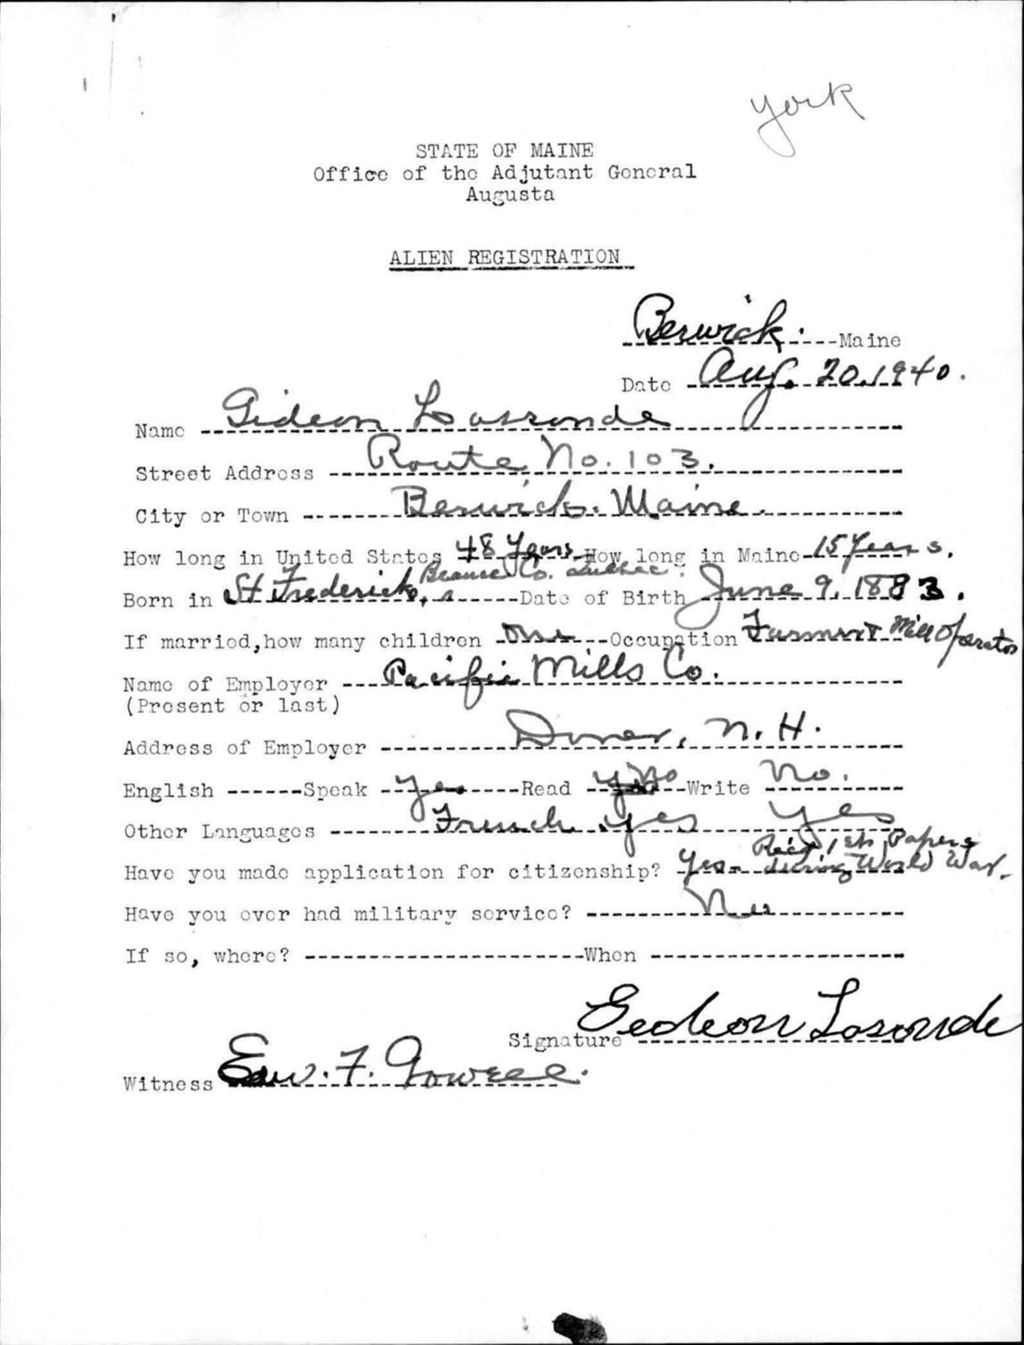 York
STATE OF MAINE
Office of the Adjutant General
Augusta
ALIEN REGISTRATION
Berwick. Maine
Date Aug. 20, 1940.
Name Gideon Lassonde
Street Address Route No. 103.
City or Town Berwick. Maine.
How long in United States 48 Years How long in Maine 15 Years.
Beause Co. Quebec.
Born in St Fredericks, Date of Birth June 9, 1883.
If married, how many children One Occupation Farmer Mill Operator
Name of Employer Pacific Mills Co.
(Present or last)
Address of Employer Dover, N.H.
English Speak Yes Read No Write No.
Other Languages French yes yes
Rec'd 1st Papers
Have you made application for citizenship? Yes. during World War.
Have you ever had military service? No
If so, where? When
Signature Gedeon Lasonde
Witness Ew. F. Gowell.